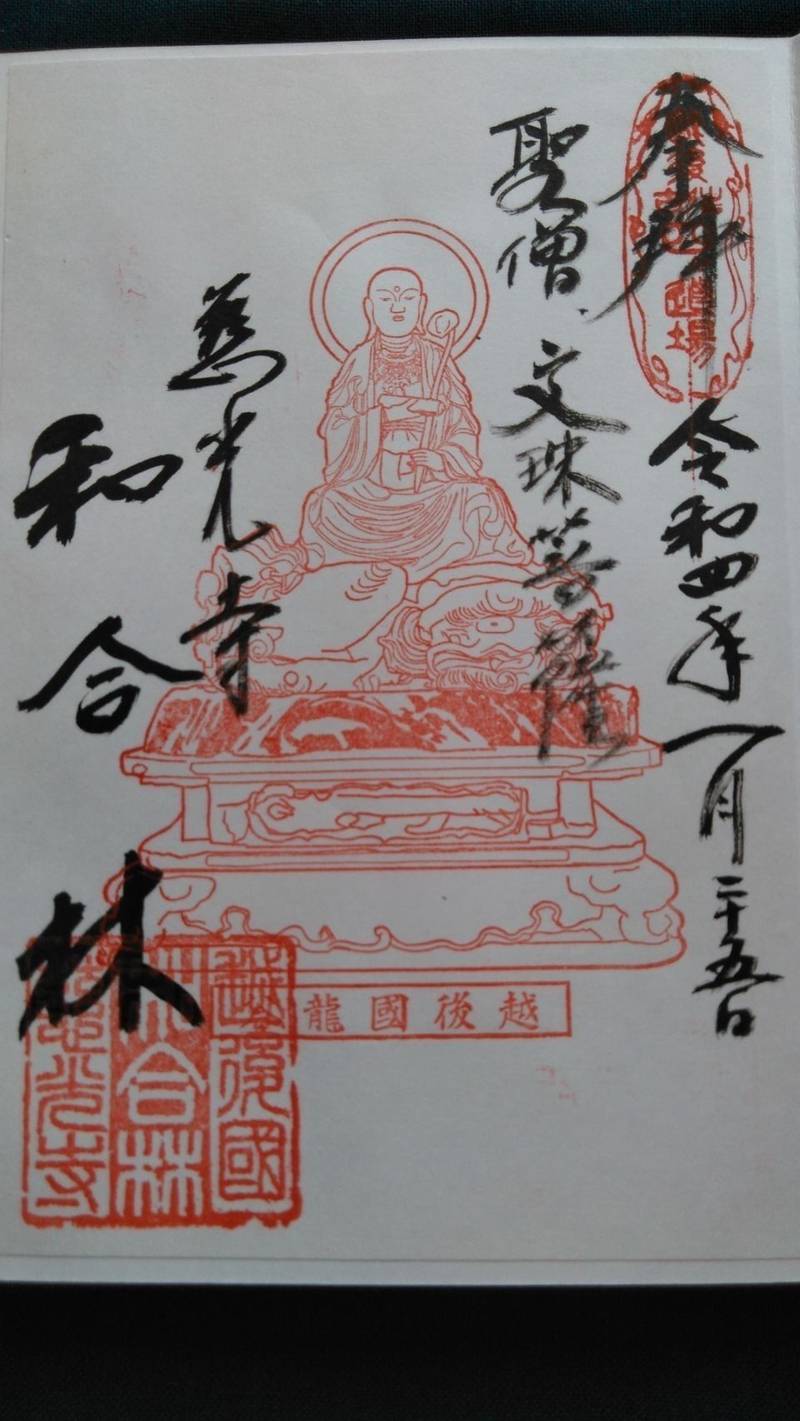 奉拝
令和四年八月二十五日
聖僧 文珠菩薩
慈光寺
和合林
越後國龍
越後國
和合林
慈光寺
道場